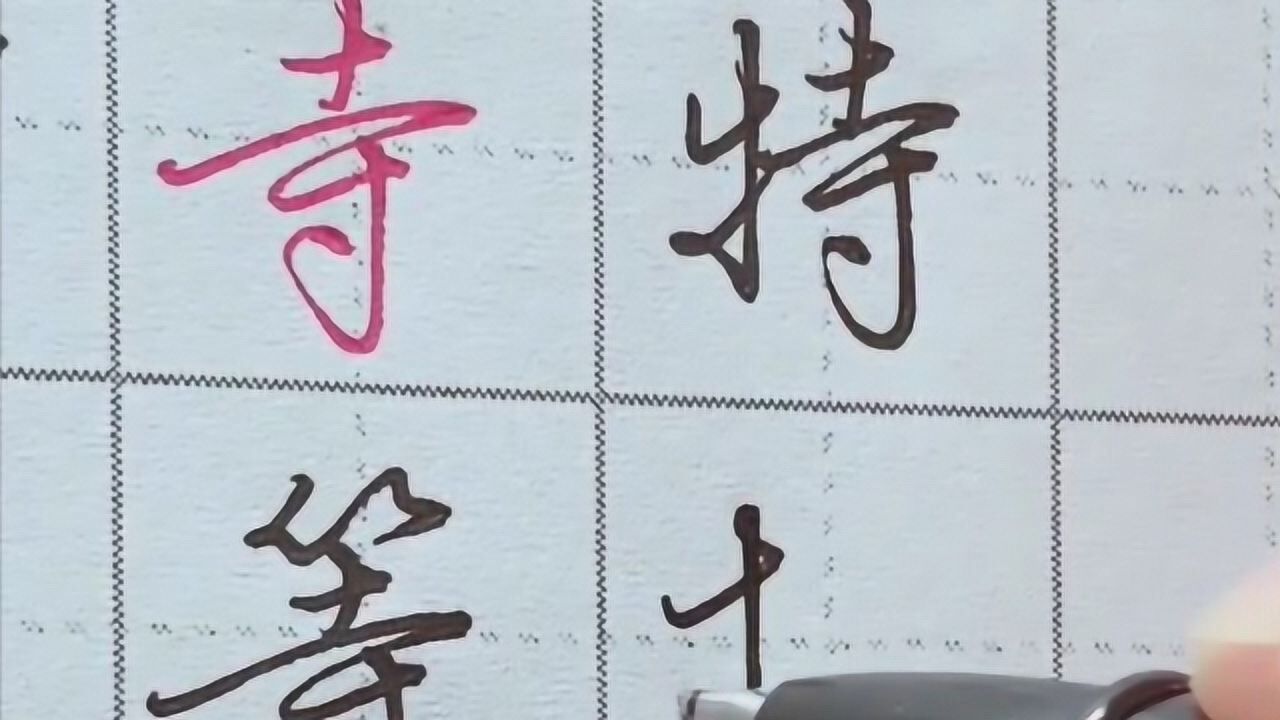 寺 特
等